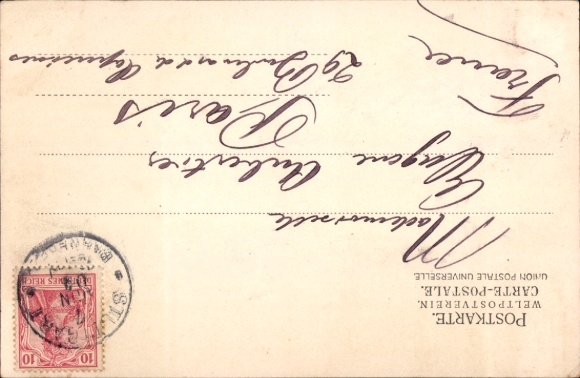 POSTKARTE.
WELTPOSTVEREIN.
CARTE-POSTALE.
UNION POSTALE UNIVERSELLE.
10 10
DEUTSCHES REICH
STUTTGART
JUN
Mademoiselle
Auberties
Paris
29 Boulevard d Capucines
France